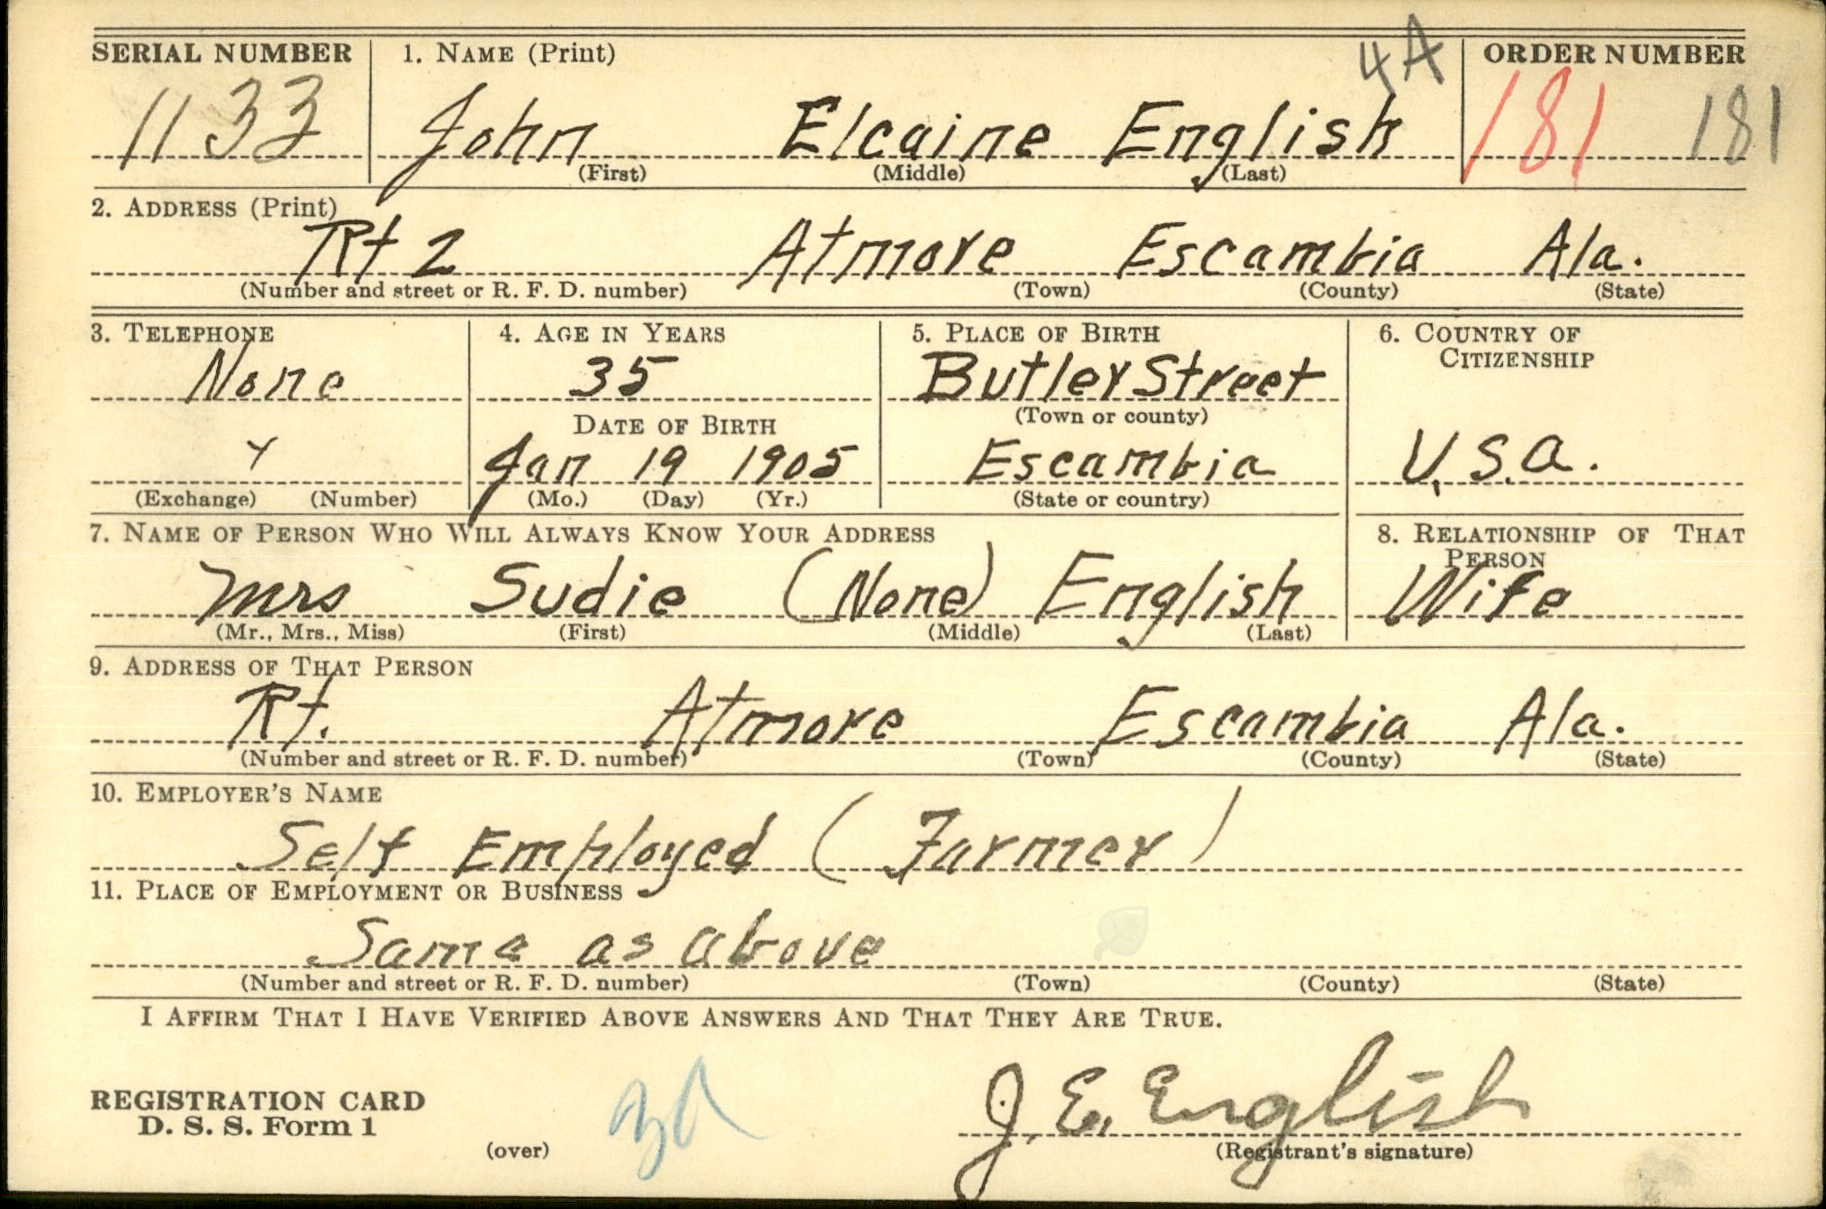 SERIAL NUMBER 1. NAME (Print) 4A ORDER NUMBER
1133 John Elcaine English 181 181
(First) (Middle) (Last)
2. ADDRESS (Print)
Rt 2 Atmore Escambia Ala.
(Number and street or R. F. D. number) (Town) (County) (State)
3. TELEPHONE 4. AGE IN YEARS 5. PLACE OF BIRTH 6. COUNTRY OF
CITIZENSHIP
None 35 Butler Street
DATE OF BIRTH (Town or county)
Jan 19 1905 Escambia U.S.A.
(Exchange) (Number) (Mo.) (Day) (Yr.) (State or country)
7. NAME OF PERSON WHO WILL ALWAYS KNOW YOUR ADDRESS 8. RELATIONSHIP OF THAT
PERSON
Mrs Sudie (None) English Wife
(Mr., Mrs., Miss) (First) (Middle) (Last)
9. ADDRESS OF THAT PERSON
Rt. Atmore Escambia Ala.
(Number and street or R. F. D. number) (Town) (County) (State)
10. EMPLOYER'S NAME
Self Employed (Farmer)
11. PLACE OF EMPLOYMENT OR BUSINESS
Same as above
(Number and street or R. F. D. number) (Town) (County) (State)
I AFFIRM THAT I HAVE VERIFIED ABOVE ANSWERS AND THAT THEY ARE TRUE.
REGISTRATION CARD
D. S. S. Form 1 J. E. English
(over) (Registrant's signature)